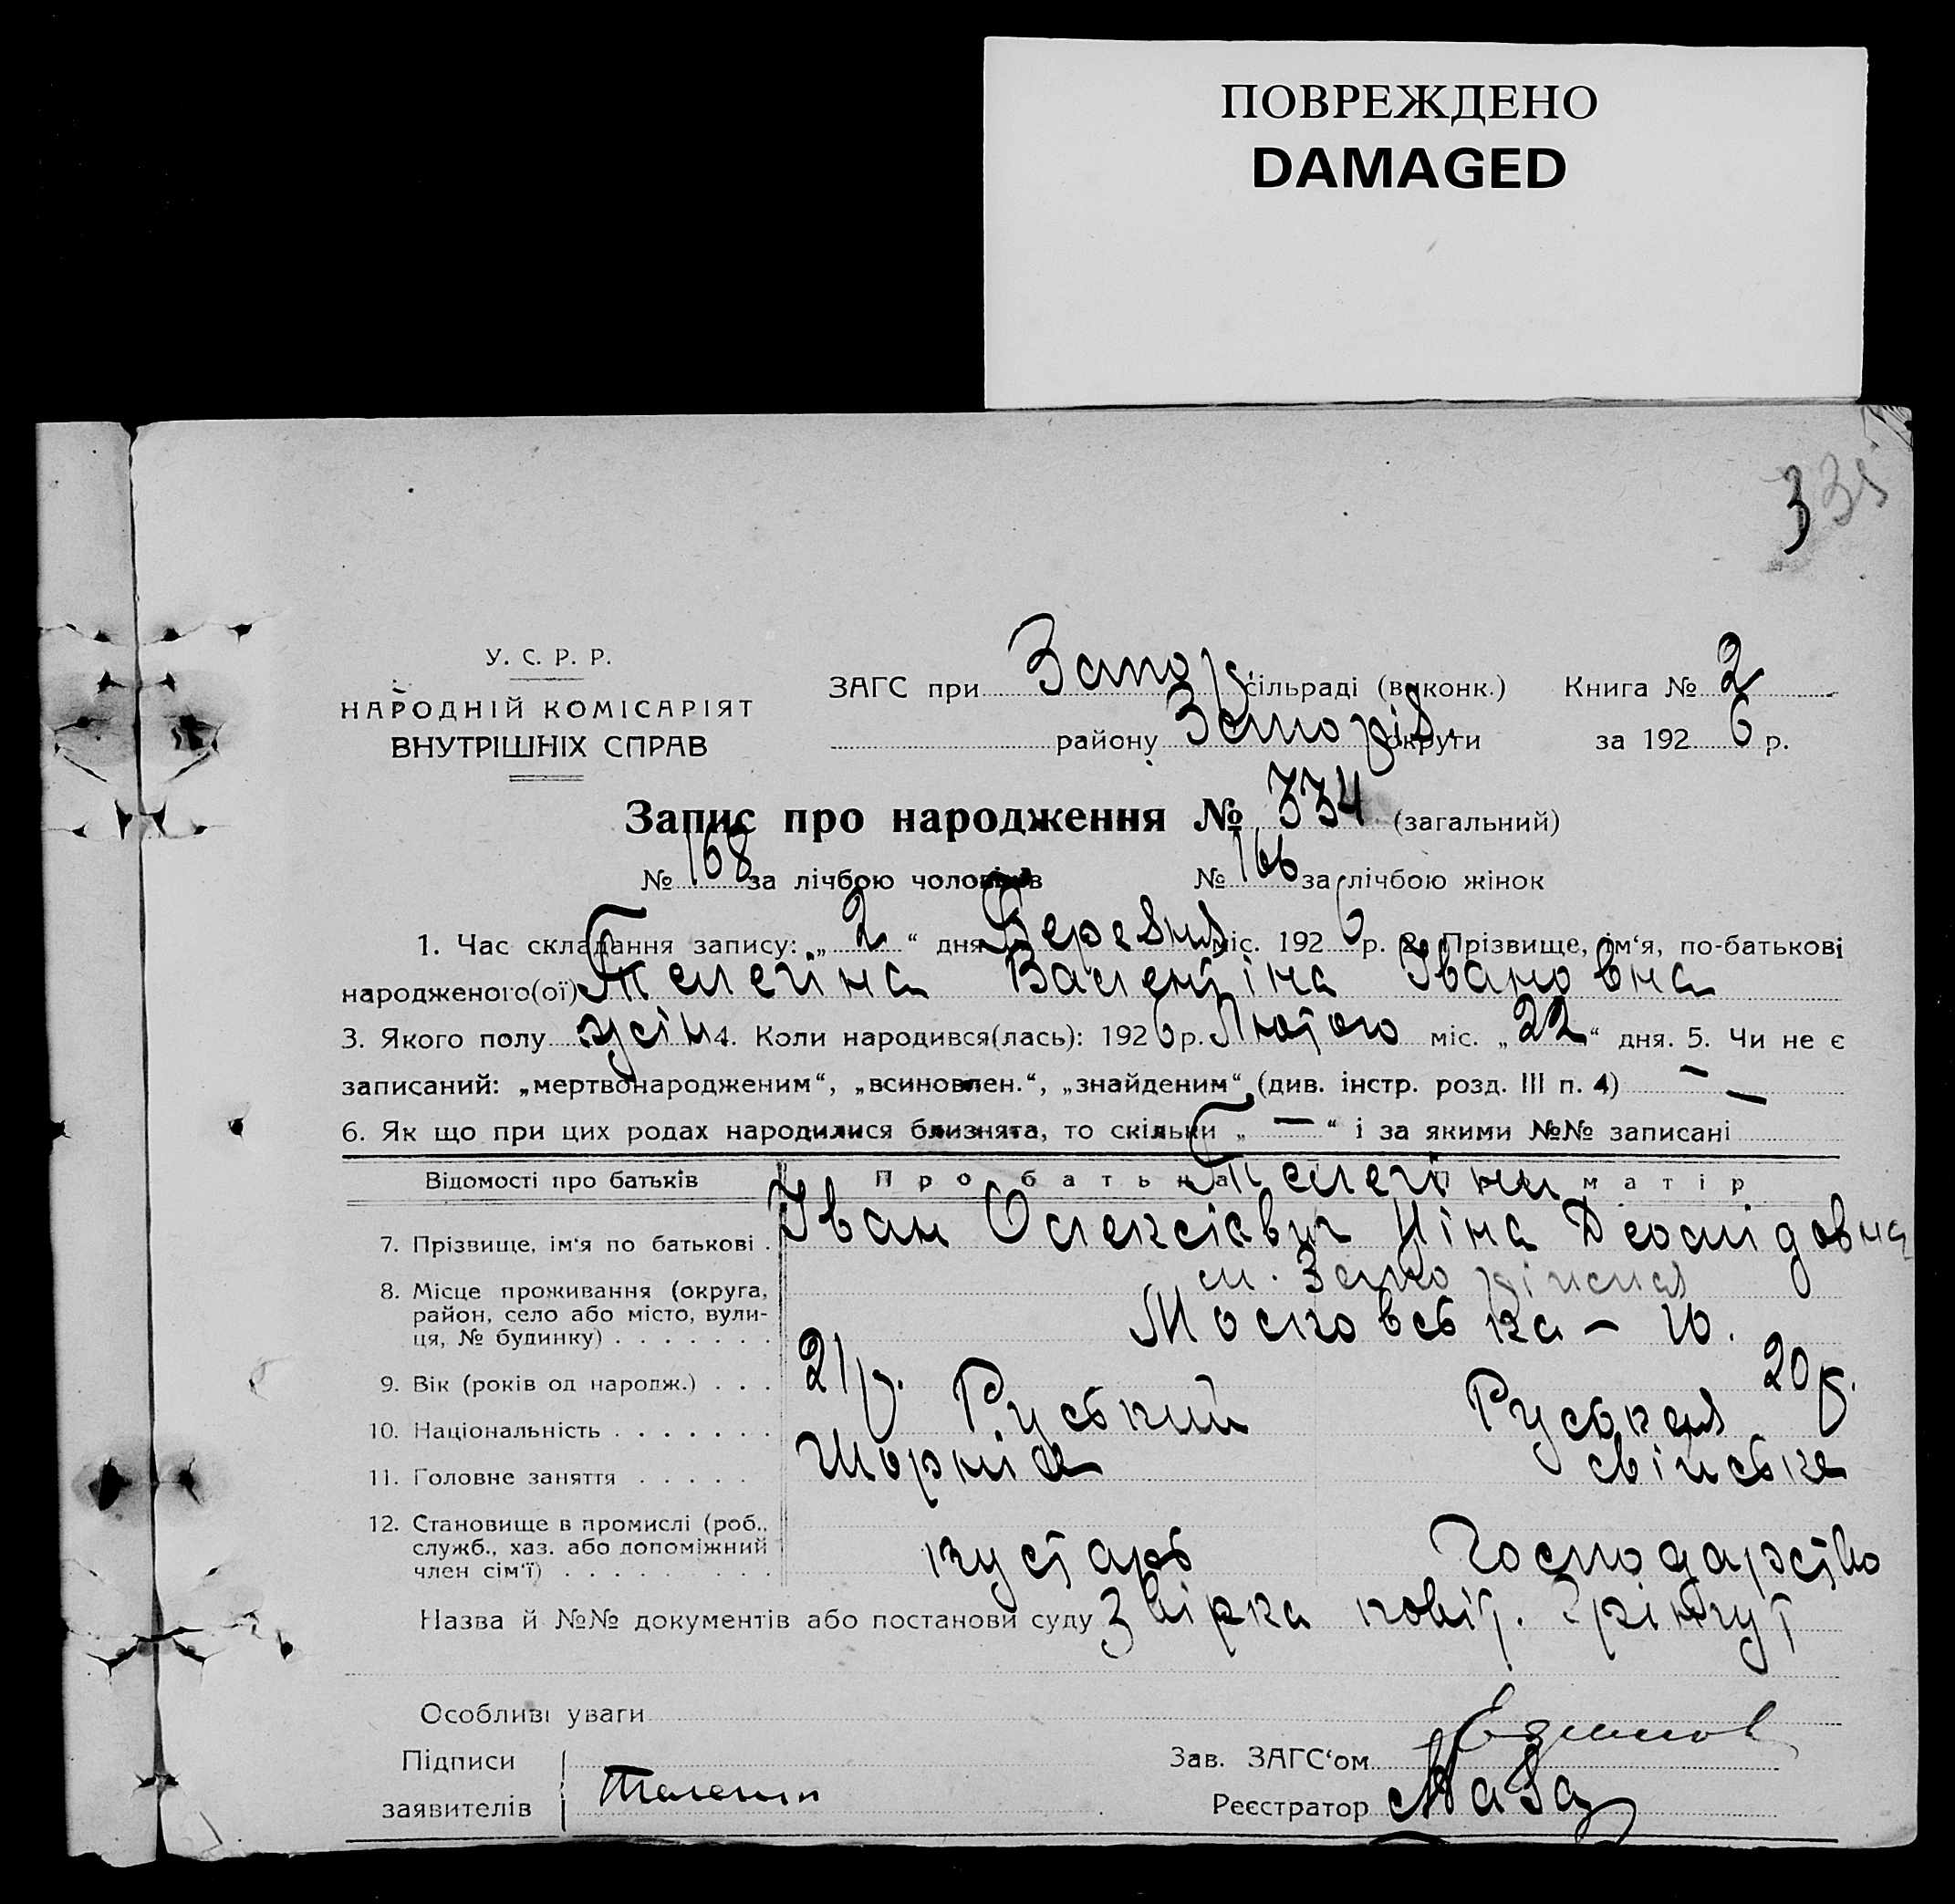 ПОВРЕЖДЕНО
DAMAGED
3 335
У. С. Р. Р.
НАРОДНІЙ КОМІСАРІЯТ
ВНУТРІШНІХ СПРАВ
ЗАГС при Запор. сільраді (виконк.) Книга № 2
району Запоріз. округи за 1926 р.
Запис про народження № 334 (загальний)
№ 168 за лічбою чоловіків № 166 за лічбою жінок
1. Час складання запису: „2“ дня Березня міс. 1926 р. 2. Прізвище, ім‘я, по-батькові
народженого(ої) Телегіна Валентіна Івановна
3. Якого полу жін 4. Коли народився(лась): 1926 р. Лютого міс. „22“ дня. 5. Чи не є
записаний: „мертвонародженим“, „всиновлен.“, „знайденим“ (див. інстр. розд. III п. 4) — —
6. Як що при цих родах народилися близнята, то скільки „ — “ і за якими №№ записані
Відомості про батьків Про батька Про матір
Телегіни
7. Прізвище, ім‘я по батькові . Іван Олексієвич Ніна Леонідовна
8. Місце проживання (округа,
район, село або місто, вули-
ця, № будинку) . . . . . . .
м. Запоріжжя
Московська – 10.
9. Вік (років од народж.) . . . 21 р. 20 р.
10. Національність . . . . . . . Руський Руськая
11. Головне заняття . . . . . Шорнік свійське
12. Становище в промислі (роб.,
служб., хаз. або допоміжний
член сім‘ї) . . . . . . . . .
кустарь господарство
Назва й №№ документів або постанови суду Звірка ковіт.
Особливі уваги
Підписи
заявителів
Телегин
Зав. ЗАГС‘ом
Реєстратор